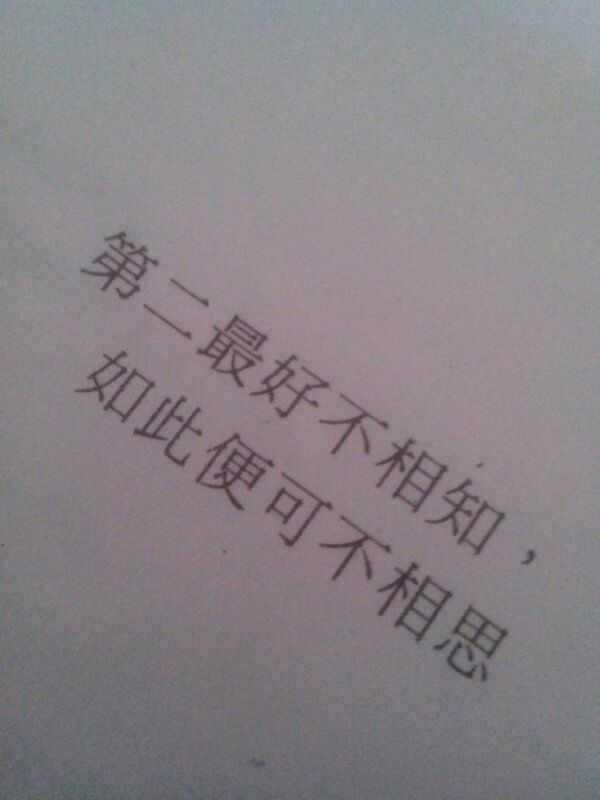 第二最好不相知，
如此便可不相思